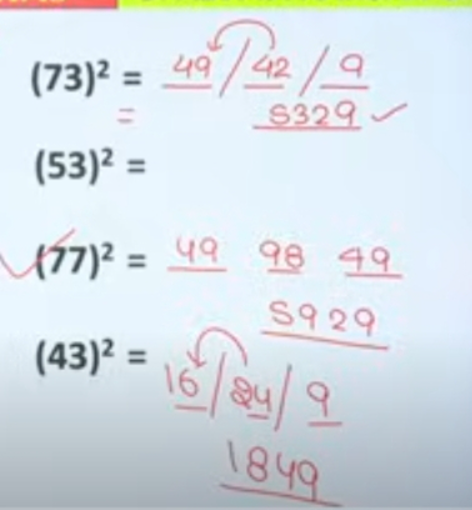 (73)² = 49 / 42 / 9
=
5329 ✓
(53)² =
✓ (77)² = 49 98 49
5929
(43)² = 16 / 24 / 9
1849